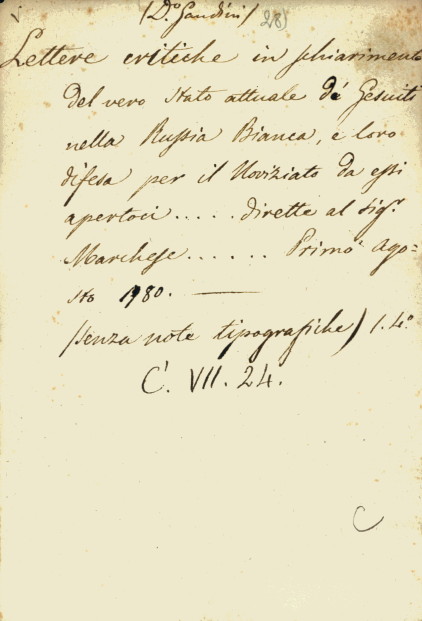 (D.º Gandini)
281
Lettere critiche in schiarimento
del vero stato attuale de' Gesuiti
nella Russia Bianca, e loro
difesa per il Noviziato da essi
apertoci ..... dirette al Sig.r
Marchese ...... Primo Ago=
sto 1780. —
(senza note tipografiche) 1. 4.º
C. VII. 24.
C